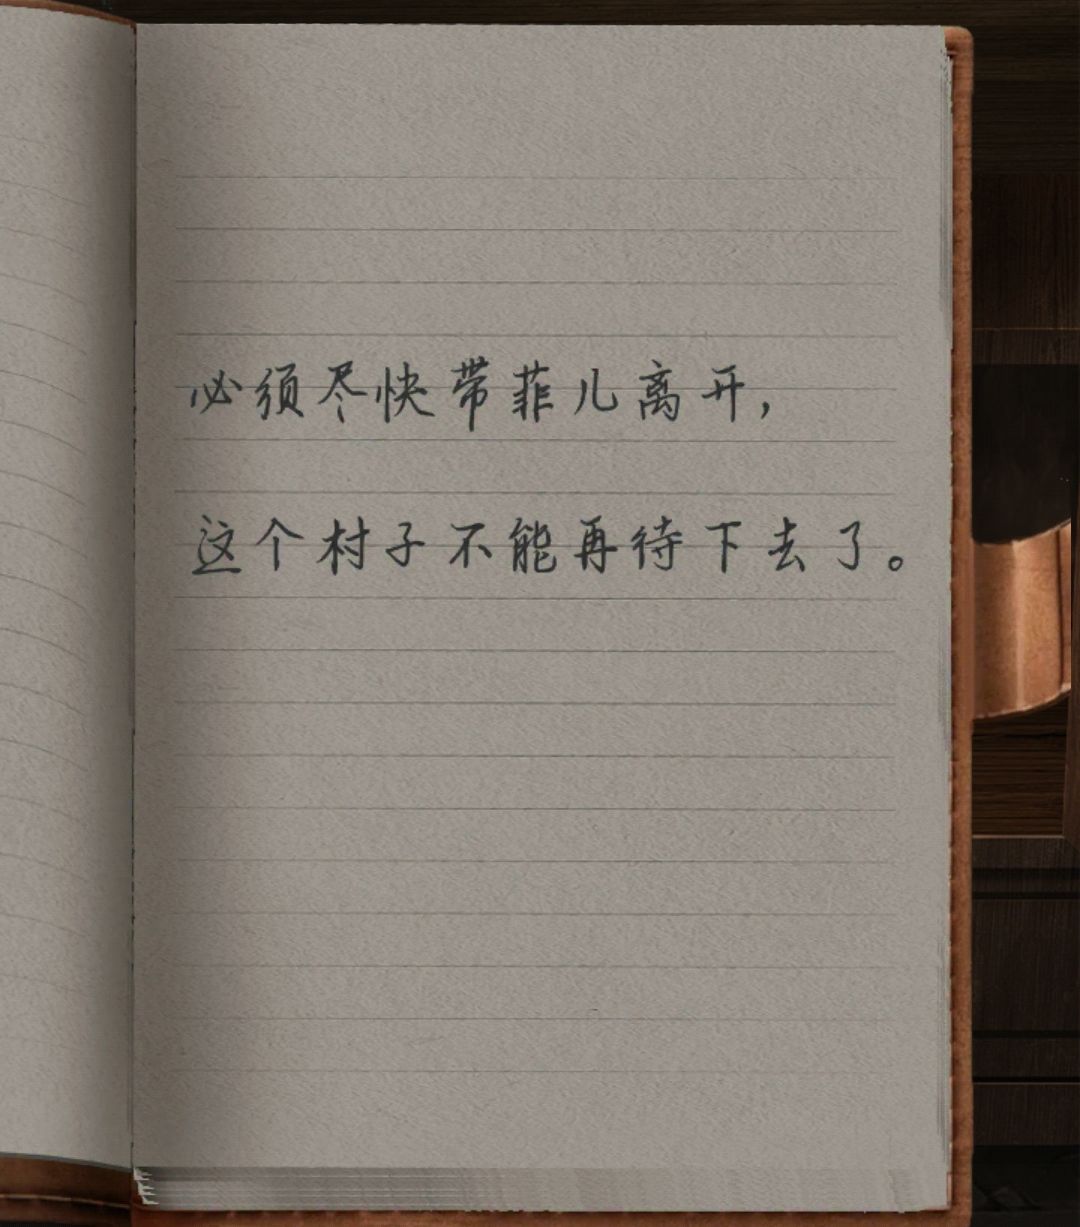 必须尽快带菲儿离开，
这个村子不能再待下去了。